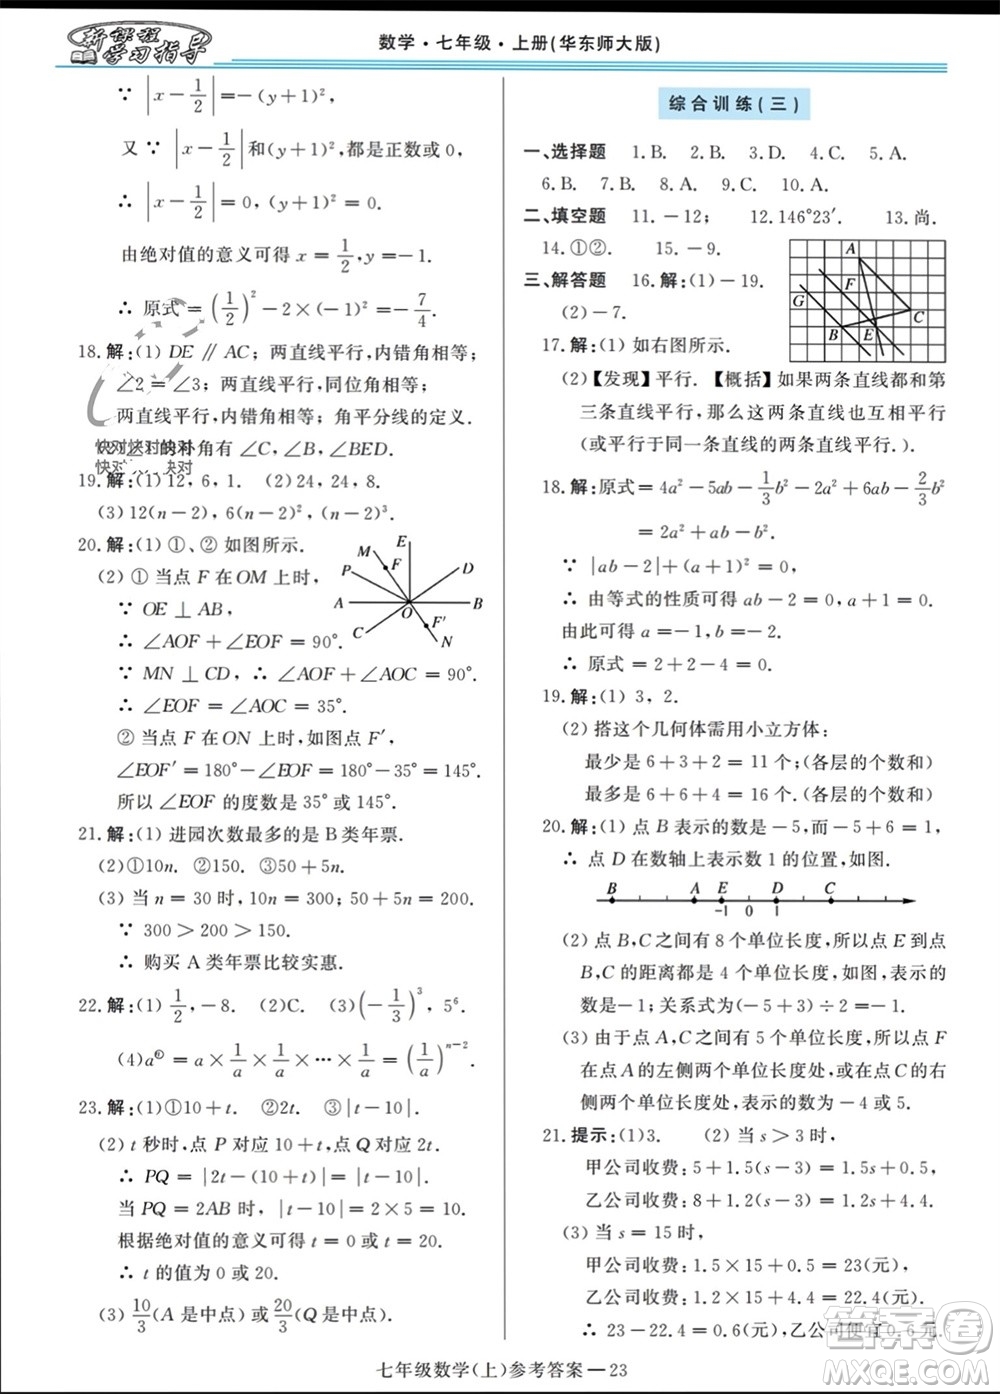 新课程
学习指导
数学·七年级·上册(华东师大版)
∵ |x－1/2|＝－(y＋1)²,
又 ∵ |x－1/2| 和(y＋1)²,都是正数或0,
∴ |x－1/2|＝0,(y＋1)²＝0.
由绝对值的意义可得 x＝1/2,y＝－1.
∴ 原式＝(1/2)²－2×(－1)²＝－7/4
18. 解:(1) DE ∥ AC; 两直线平行,内错角相等;
∠2＝∠3; 两直线平行,同位角相等;
两直线平行,内错角相等; 角平分线的定义.
(2)∠1 的补角有 ∠C,∠B,∠BED.
快对快对快对
快对 快对
19. 解:(1) 12, 6, 1. (2) 24, 24, 8.
(3) 12(n－2), 6(n－2)², (n－2)³.
20. 解:(1) ①、② 如图所示.
(2) ① 当点 F 在 OM 上时,
∵ OE ⊥ AB,
∴ ∠AOF＋∠EOF＝90°.
∵ MN ⊥ CD, ∴ ∠AOF＋∠AOC＝90°.
∴ ∠EOF＝∠AOC＝35°.
② 当点 F 在 ON 上时,如图点 F′,
∠EOF′＝180°－∠EOF＝180°－35°＝145°.
所以 ∠EOF 的度数是 35° 或 145°.
E
M
F
D
P
A
O
B
C
F′
N
21. 解:(1) 进园次数最多的是 B 类年票.
(2)①10n. ②150. ③50＋5n.
(3) 当 n＝30 时,10n＝300; 50＋5n＝200.
∵ 300＞200＞150.
∴ 购买 A 类年票比较实惠.
22. 解:(1) 1/2,－8. (2)C. (3)(－1/3)³, 5⁶.
(4)aⓝ＝a×1/a×1/a×…×1/a＝(1/a)ⁿ⁻²
23. 解:(1)①10＋t. ②2t. ③|t－10|.
(2) t 秒时,点 P 对应 10＋t,点 Q 对应 2t.
∴ PQ＝|2t－(10＋t)|＝|t－10|.
当 PQ＝2AB 时,|t－10|＝2×5＝10.
根据绝对值的意义可得 t＝0 或 t＝20.
∴ t 的值为 0 或 20.
(3) 10/3(A 是中点) 或 20/3(Q 是中点).
综合训练(三)
一、选择题 1. B. 2. B. 3. D. 4. C. 5. A.
6. B. 7. B. 8. A. 9. C. 10. A.
二、填空题 11. －12; 12. 146°23′. 13. 尚.
14. ①②. 15. －9.
三、解答题 16. 解:(1)－19.
(2)－7.
17. 解:(1) 如右图所示.
A
F
G
C
B
E
(2)【发现】平行.【概括】如果两条直线都和第
三条直线平行,那么这两条直线也互相平行
(或平行于同一条直线的两条直线平行.).
18. 解:原式＝4a²－5ab－1/3b²－2a²＋6ab－2/3b²
＝2a²＋ab－b².
∵ |ab－2|＋(a＋1)²＝0.
∴ 由等式的性质可得 ab－2＝0,a＋1＝0.
由此可得 a＝－1,b＝－2.
∴ 原式＝2＋2－4＝0.
19. 解:(1) 3, 2.
(2) 搭这个几何体需用小立方体:
最少是 6＋3＋2＝11 个;(各层的个数和)
最多是 6＋6＋4＝16 个.(各层的个数和)
20. 解:(1) 点 B 表示的数是－5,而－5＋6＝1,
∴ 点 D 在数轴上表示数 1 的位置,如图.
B A E D C
-1 0 1
(2) 点 B,C 之间有 8 个单位长度,所以点 E 到点
B,C 的距离都是 4 个单位长度,如图,表示的
数是－1; 关系式为(－5＋3)÷2＝－1.
(3) 由于点 A,C 之间有 5 个单位长度,所以点 F
在点 A 的左侧两个单位长度,或在点 C 的右
侧两个单位长度,表示的数是－4 或 5.
21. 提示:(1)3. (2) 当 s＞3 时,
甲公司收费:5＋1.5(s－3)＝1.5s＋0.5,
乙公司收费:8＋1.2(s－3)＝1.2s＋4.4.
(3) 当 s＝15 时,
甲公司收费:1.5×15＋0.5＝23(元),
乙公司收费:1.2×15＋4.4＝22.4(元).
∴ 23－22.4＝0.6(元),乙公司便宜0.6元.
答案圈
MXQE.COM
七年级数学(上)参考答案—23